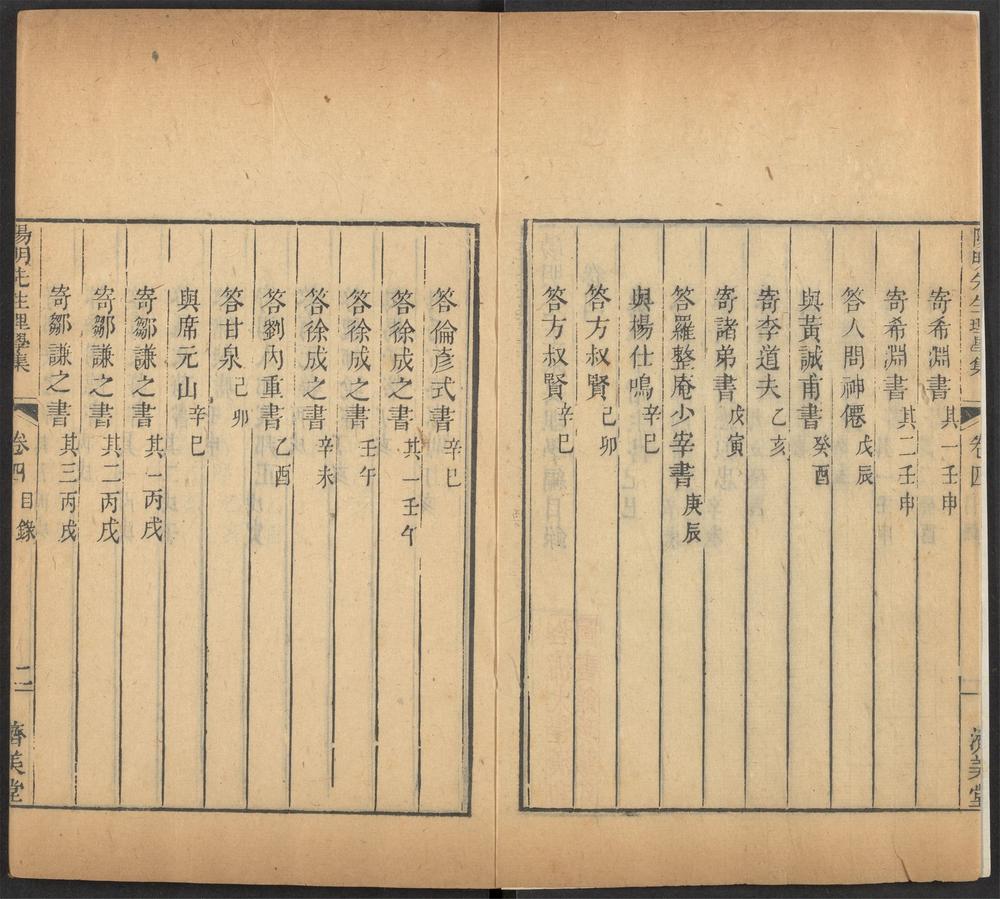 陽明先生理學集 卷四 一 濟美堂
寄希淵書 其一壬申
寄希淵書 其二壬申
答人問神僊 戊辰
與黃誠甫書 癸酉
寄李道夫 乙亥
寄諸弟書 戊寅
答羅整庵少宰書 庚辰
與楊仕鳴 辛巳
答方叔賢 己卯
答方叔賢 辛巳
答倫彥式書 辛巳
答徐成之書 其一壬午
答徐成之書 壬午
答徐成之書 辛未
答劉內重書 乙酉
答甘泉 己卯
與席元山 辛巳
寄鄒謙之書 其一丙戌
寄鄒謙之書 其二丙戌
寄鄒謙之書 其三丙戌
陽明先生理學集 卷四 目錄 二 濟美堂